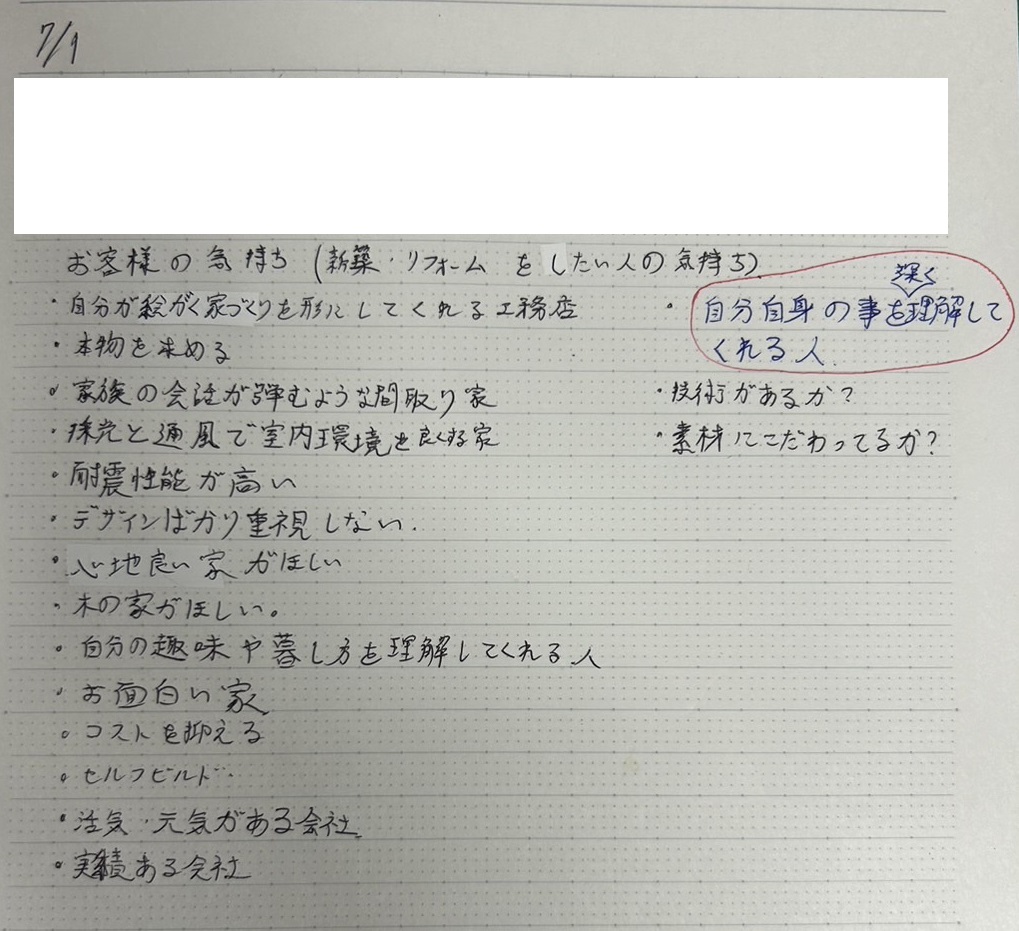 7/9
お客様の気持ち(新築・リフォームをしたい人の気持ち)
・自分が絵がく家づくりを形にしてくれる工務店
・本物を求める
・家族の会話が弾むような間取り家
・採光と通風で室内環境を良くする家
・耐震性能が高い
・デザインばかり重視しない.
・心地良い家がほしい
・木の家がほしい。
・自分の趣味や暮し方を理解してくれる人
・お面白い家
・コストを抑える
・セルフビルド
・活気・元気がある会社
・実績ある会社
・自分自身の事を深く理解して
くれる人.
・技術があるか?
・素材にこだわってるか?